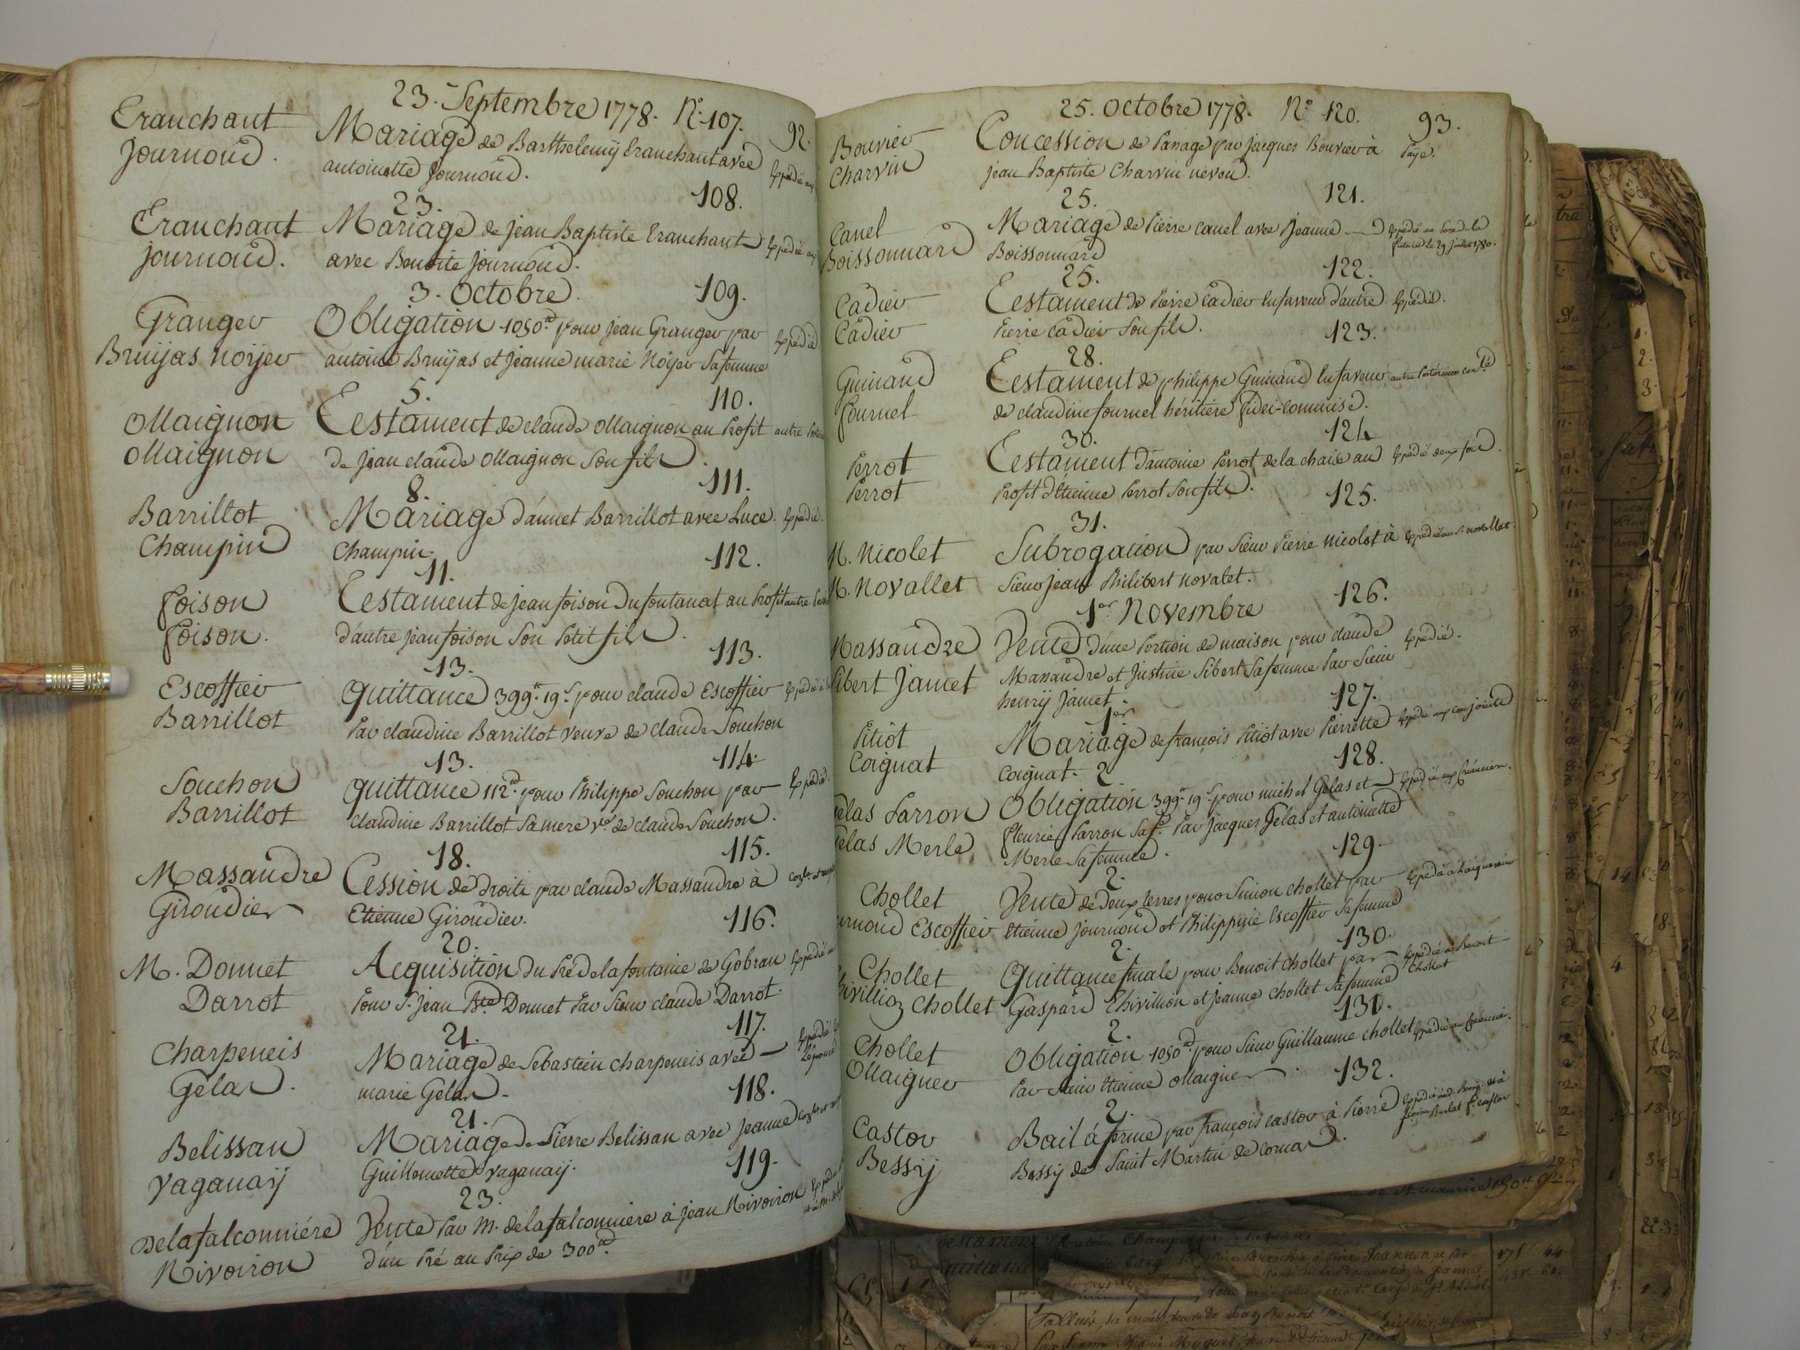 23. Septembre 1778. N.° 107.
92.
Tranchant
Journoud.
Mariage de Barthelemÿ Tranchant avec
antoinette Journoud.
Expédié
23.
108.
Tranchant
Journoud.
Mariage de jean Baptiste Tranchant
avec Benoite Journoud.
Expédié
3. Octobre.
109.
Granger
Bruÿas Noÿer
Obligation 1050.# pour jean Granger par
antoine Bruÿas et jeanne marie Noÿer sa femme
Expédié
5.
110.
Maignon
Maignon
Testament de claude Maignon au Profit
de jean claude Maignon son fils.
autre
8.
111.
Barrillot
Champin
Mariage d'annet Barrillot avec Luce
Champin.
Expédié.
11.
112.
foison
foison.
Testament de jean foison Dufontanat au Profit
d'autre jean foison son Petit fils.
autre
13.
113.
Escoffier
Barrillot
Quittance 399.# 19.s pour claude Escoffier
Par claudine Barrillot veuve de claude Souchon
Expédié
13.
114.
Souchon
Barrillot
Quittance 112.# pour Philippe Souchon par
claudine Barrillot sa mere v.e de claude Souchon.
Expédié.
18.
115.
Massandre
Giroudier
Cession de droits par claude Massandre à
Etienne Giroudier.
20.
116.
M. Donnet
Darrot
Acquisition du Pré de la fontaine de Gobran
Pour S.r Jean B.te Donnet Par Sieur claude Darrot.
Expédié
21.
117.
Charpeneis
Gelas.
Mariage de Sebastien Charpeneis avec
marie Gelas.
Expédié
21.
118.
Belissan
Vaganaÿ
Mariage de Pierre Belissan avec Jeanne
Guillemette Vaganaÿ.
23.
119.
Delafalconniére
Rivoiron
Vente Par M. delafalconniere à jean Rivoiron
d'un Pré au Prix de 300.#
25. Octobre 1778. N.° 120.
93.
Bouvier
Charvin
Concession de Passage par jacques Bouvier à
jean Baptiste Charvin neveu.
25.
121.
Canel
Boissonnard
Mariage de Pierre canel avec Jeanne
Boissonnard
Expédié au
le 29 juillet 1780.
25.
122.
Cadier
Cadier
Testament de Pierre Cadier en faveur d'autre
Pierre Cadier son fils.
Expédié.
28.
123.
Guinand
fournel
Testament de philippe Guinand en faveur
de claudine fournel héritière fidei-commise.
autre
30.
124
Perrot
Perrot
Testament d'antoine Perrot de la chaise au
Profit d'Etienne Perrot son fils.
Expédié deux fois.
31.
125.
M. Nicolet
M. Novallet
Subrogation par Sieur Pierre Nicolet à
Sieur Jean Philibert Novalet.
Expédié
1.er Novembre
126.
Massandre
Sibert Jamet
Vente d'une Portion de maison pour claude
Massandre et Justine Sibert sa femme Par Sieur
henrÿ Jamet.
Expédié.
1.er
127.
Pitiot
Coignat
Mariage de françois Pitiot avec Pierrette
Coignat.
Expédié aux conjoints
2.
128.
Gelas Parron
Gelas Merle
Obligation 399.# 19.s pour michel Gelas et
fleurie Parron sa f.e Par Jacques Gelas et antoinette
Merle sa femme.
Expédié aux Créanciers.
2.
129.
Chollet
Journoud Escoffier
Vente de deux terres pour Simon Chollet par
Etienne Journoud et Philippine Escoffier sa femme
Expédié à l'acquereur
2.
130.
Chollet
Thivillion Chollet
Quittance finale pour Benoit Chollet par
Gaspard Thivillion et jeanne Chollet sa femme
Expédié à Benoit
Chollet
2.
131.
Chollet
Maignier
Obligation 1050.# pour Sieur Guillaume Chollet
Par Sieur Etienne Maignier
Expédié au Créancier.
2.
132.
Castor
Bessÿ
Bail à ferme par françois Castor à Pierre
Bessÿ de Saint Martin de cornas.